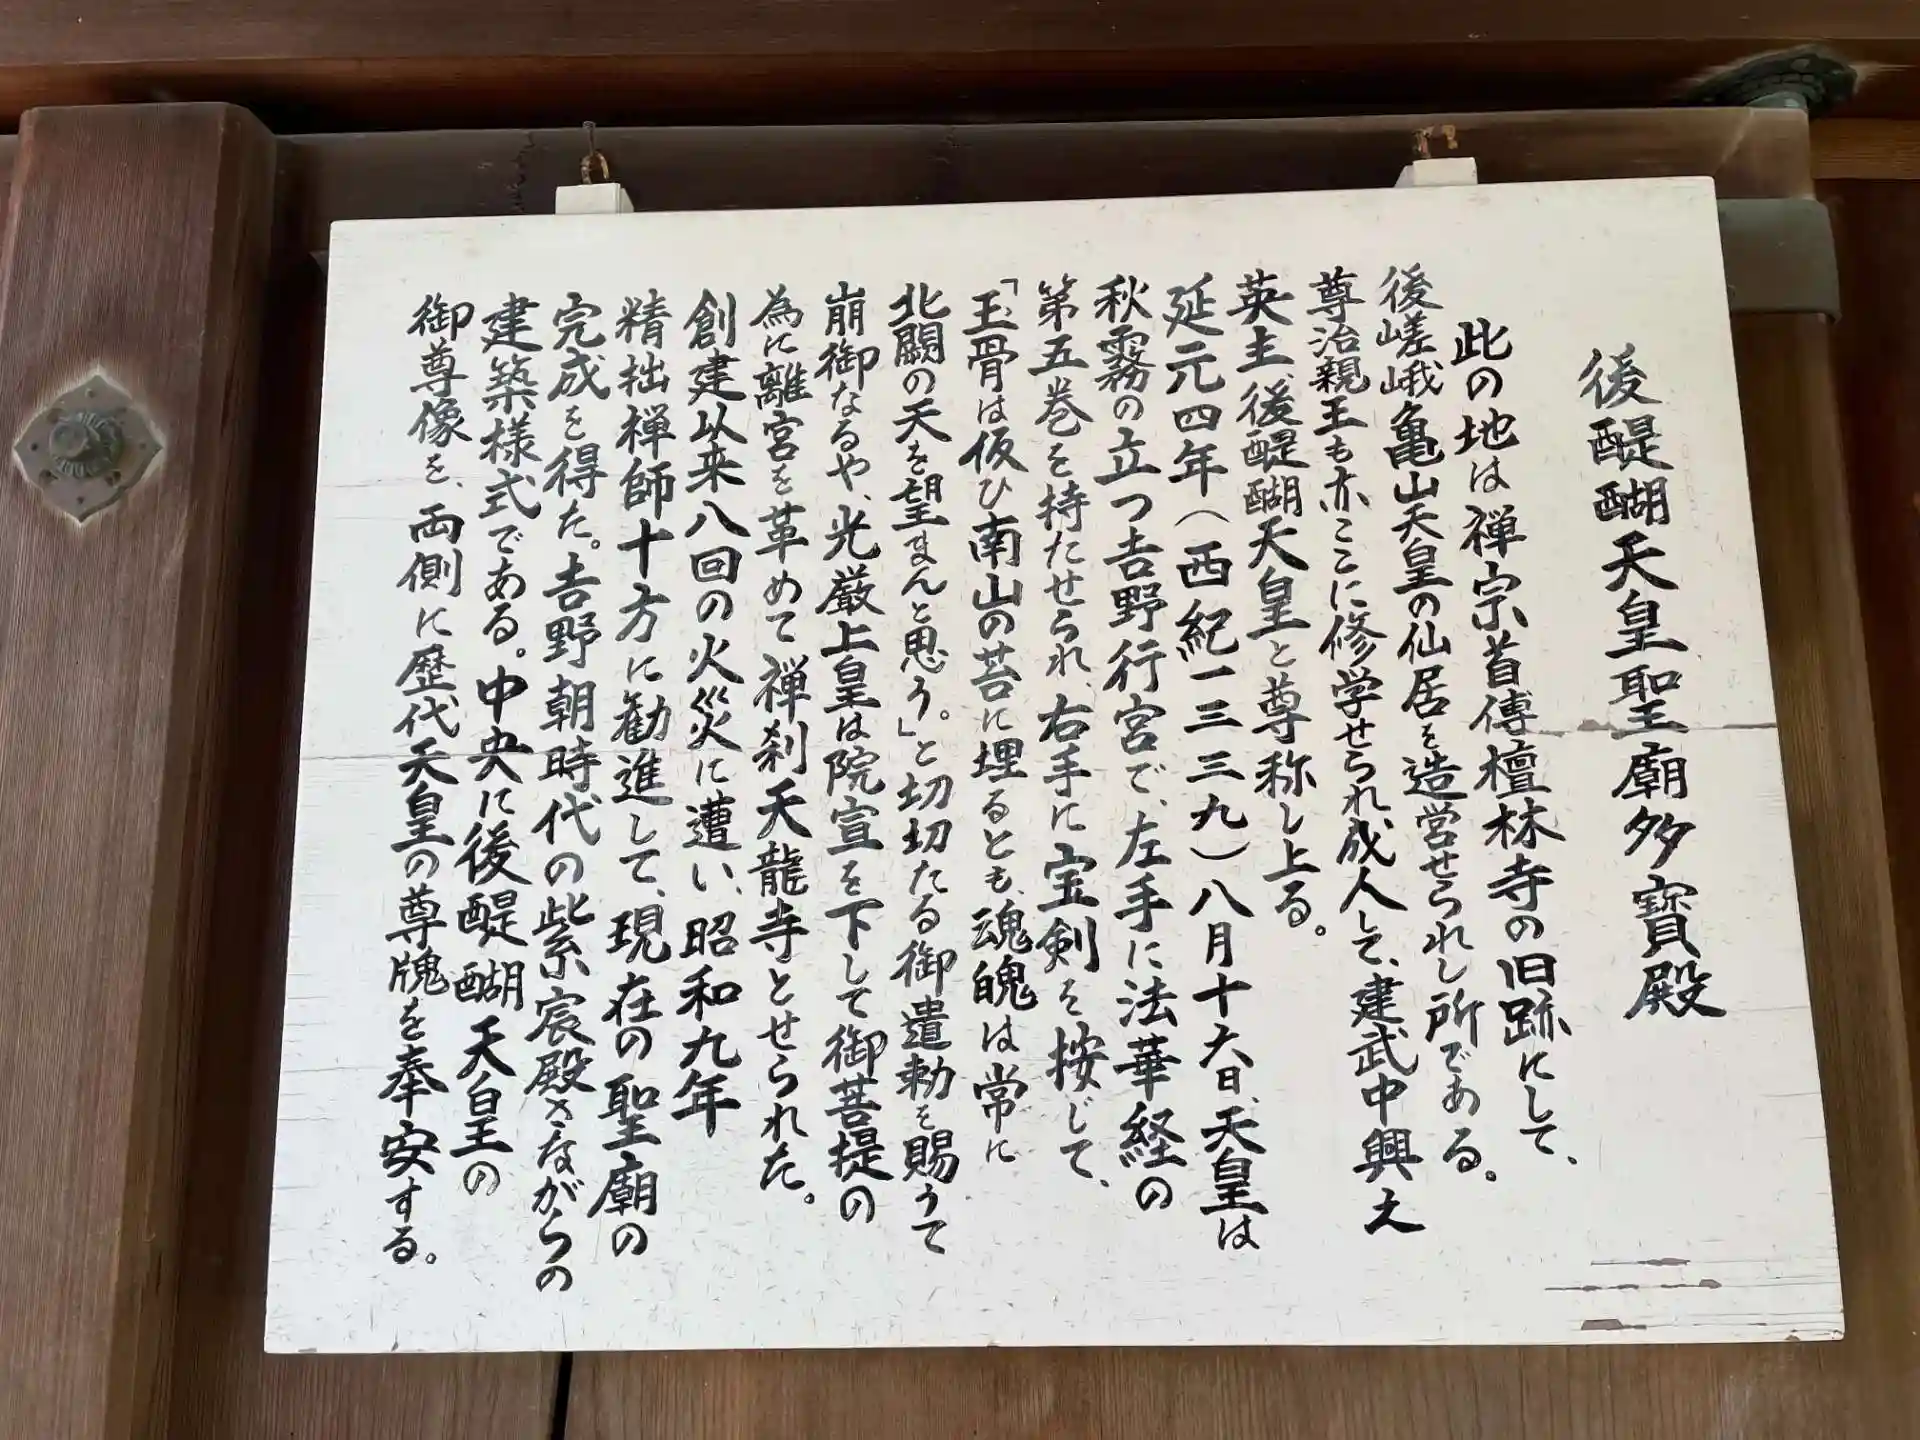 後醍醐天皇聖廟多寳殿
此の地は禅宗首傳檀林寺の旧跡にして、
後嵯峨亀山天皇の仙居を造営せられし所である。
尊治親王も亦ここに修学せられ、成人して、建武中興之
英主、後醍醐天皇と尊称し上る。
延元四年（西紀一三三九）八月十六日、天皇は
秋霧の立つ吉野行宮で、左手に法華経の
第五巻を持たせられ、右手に宝剣を按じて、
「玉骨は仮ひ南山の苔に埋るとも、魂魄は常に
北闕の天を望まんと思う。」と切切たる御遺勅を賜うて
崩御なるや、光厳上皇は院宣を下して御菩提の
為に離宮を革めて禅刹天龍寺とせられた。
創建以来八回の火災に遭い、昭和九年
精拙禅師十方に勧進して、現在の聖廟の
完成を得た。吉野朝時代の紫宸殿さながらの
建築様式である。中央に後醍醐天皇の
御尊像を、両側に歴代天皇の尊牌を奉安する。